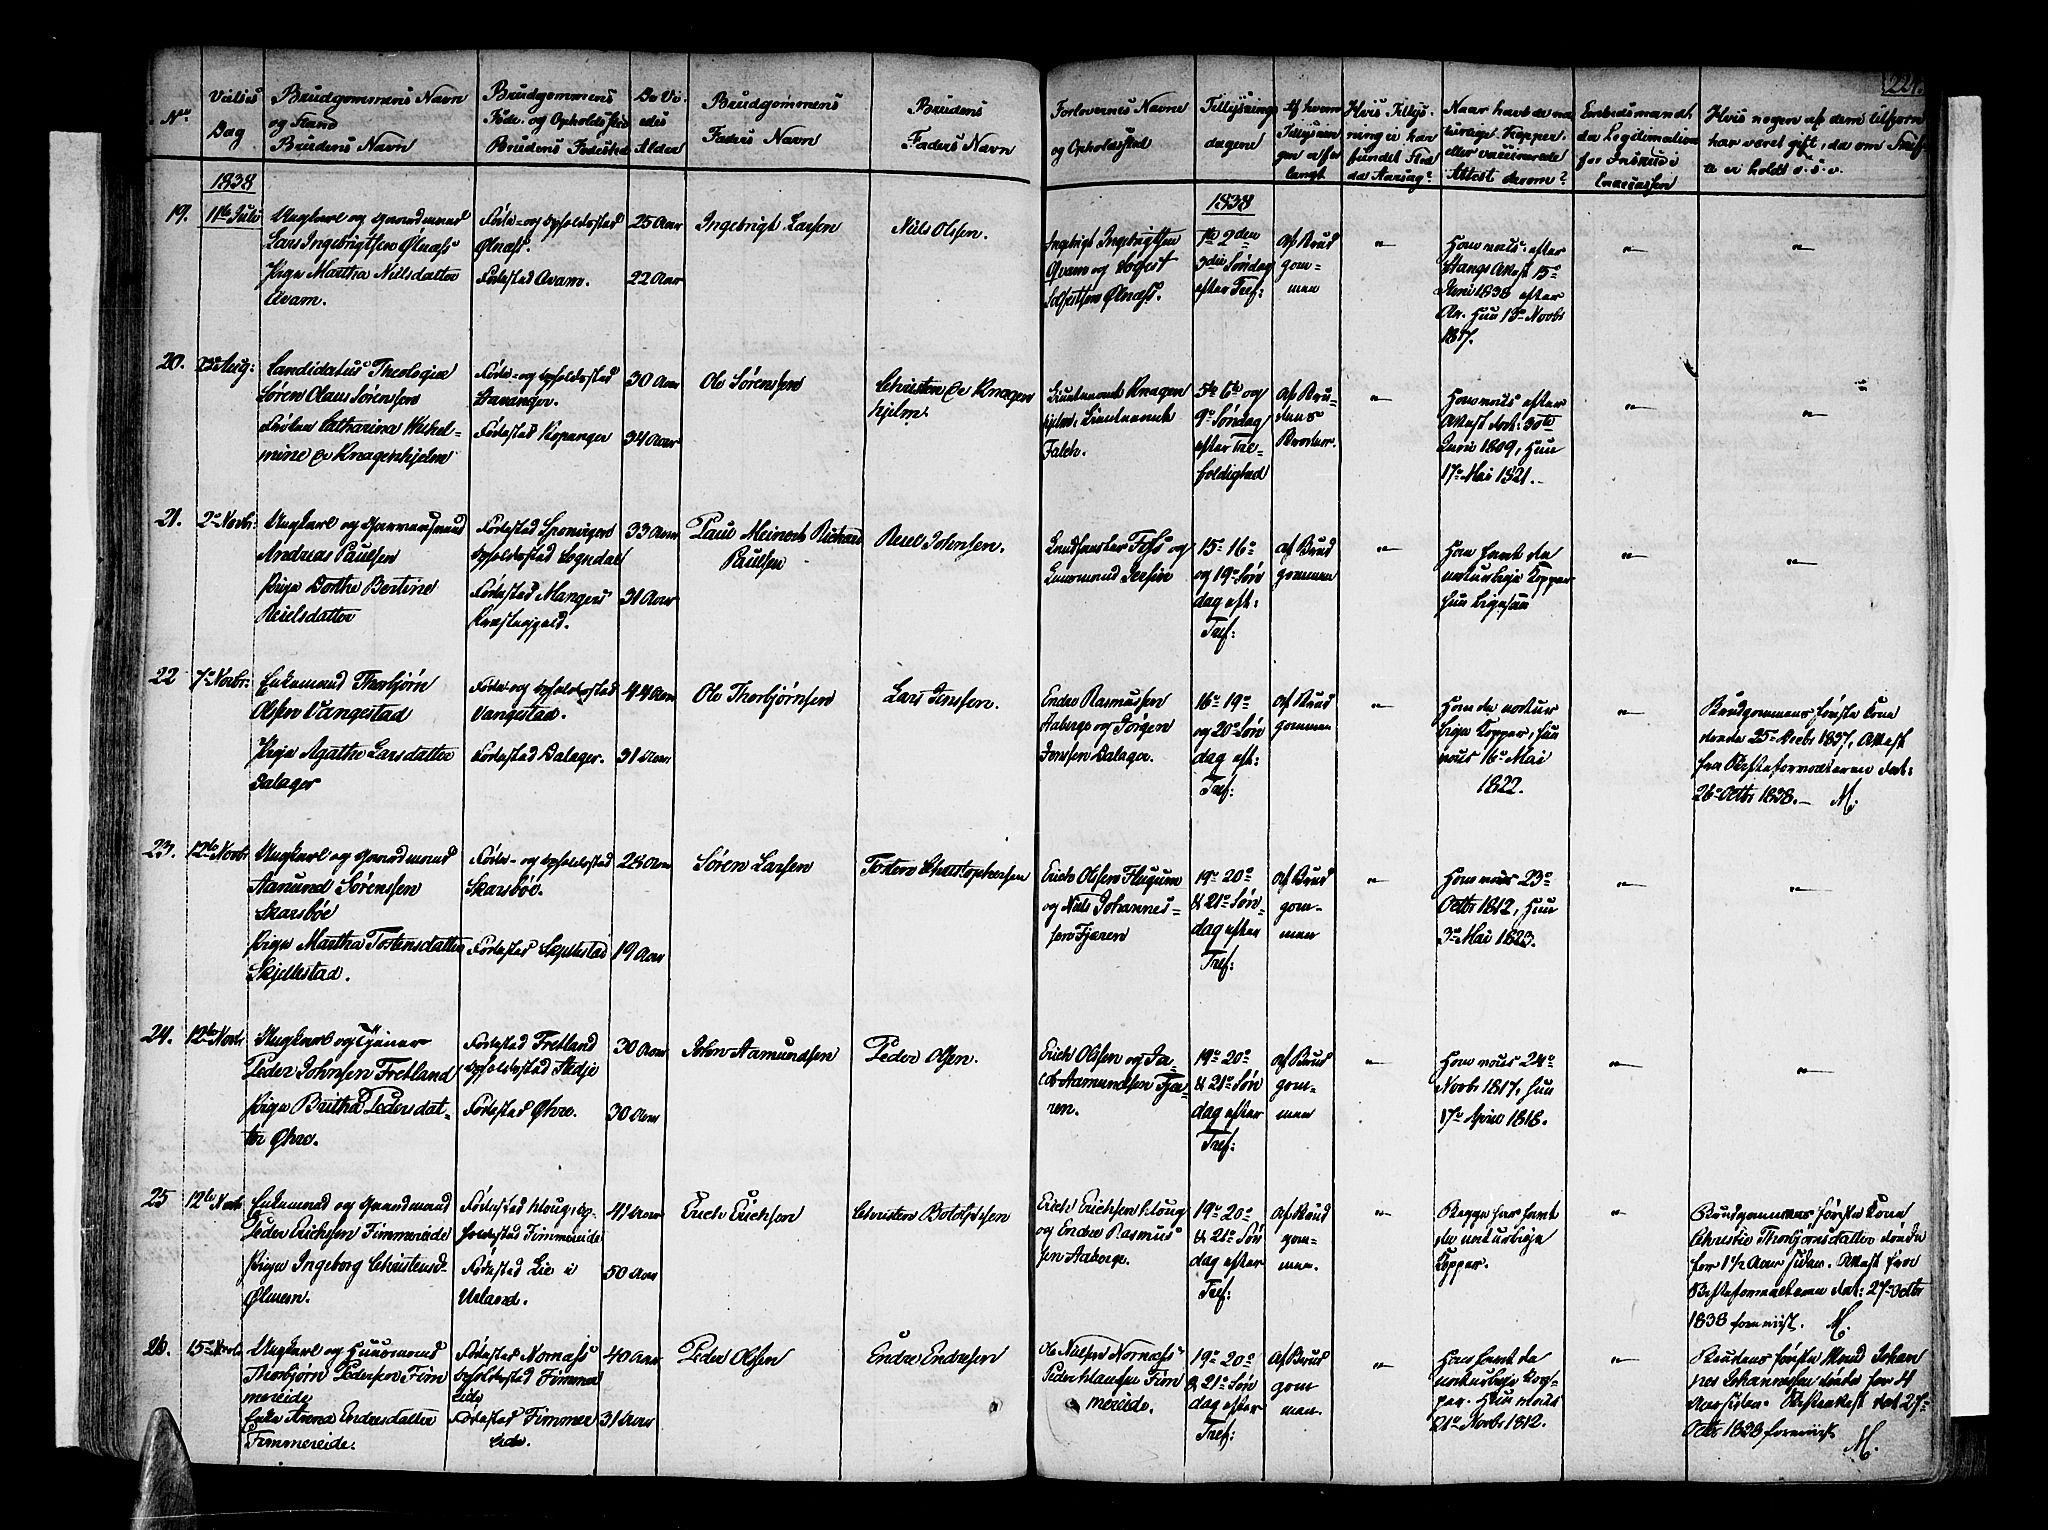 224.
No.
Vielses
Dag
Brudgommens Navn
og Stand
Brudens Navn
Brudgommens
Føde- og Opholdssted
Brudens Fødested
De Vi-
edes
Alder
Brudgommens
Faders Navn
Brudens
Faders Navn
Forlovernes Navne
og Opholdssted
Tillysnings
dagene
Af hvem
Tillysnin
gen er for
langt
Hvis Tillys-
ning ei har
fundet Sted
da Aarsag?
Naar havt de na
turlige Kopper
eller vaccinerede
Attest derom?
1838
19.
11te Juli
Ungkarl og Gaardmand
Lars Ingebrigtsen Ølnæss
Pige Martha Nielsdatter
Qvam.
Føde- og Opholdssted
Ølnæss.
Fødested Qvam.
25 Aar
22 Aar
Ingebrigt Larsen
Niels Olsen.
1838
Ingebrigt Ingebrigtsen
Qvam og
Ølnæss.
1ste 2den
3die Søndag
efter Tref:
af Brud
gom-
men
Ham vacc: efter
Attest 15de
Juni 1838
Hun 13de Novbr
1817.
20.
Aug:
Candidatus Theologiæ
Søren Olaus Sørensen
Frøken Catharina Wilhel-
mine de Knagenhjelm
Føde- og Opholdssted
Stavanger.
Fødested Kopanger
30 Aar
34 Aar
Ole Sørensen
Christen de Knagen
hjelm.
Lieutenant Knagen
hjelm, Lieutenant
Falch.
5te 6te og
9de Søndag
efter Tre-
foldighed
af Bru-
dens
Broder.
Ham vacc: efter
Attest dat: 30te
Juni 1809, Hun
17de Mai 1821.
21.
2de Novbr:
Ungkarl og
Andreas Paulsen
Pige Dorthe Bertine
Reielsdatter
Fødested
Opholdssted Sogndal
Fødested Mangers
Præstegjeld.
33 Aar
31 Aar
Paul Meinech Richard
Paulsen
Reiel Johnsen.
Landhandler Foss og
15de 16de
og 19de Søn
dag eft:
Tref:
af Brud
gommen
Han havt de
naturlige Kopper
Hun ligesaa
22
7de Novbr:
Enkemand Thorbjørn
Olsen Vangestad
Pige Agathe Larsdatter
Dalager
Føde- og Opholdssted
Vangestad.
Fødested Dalager.
44 Aar
31 Aar
Ole Thorbjørnsen
Lars Jenssen.
Endre Rasmussen
Aaberge og Jørgen
Jenssen Dalager.
16de 19de
og 20de Søn
dag eft:
Tref:
af Brud
gommen
Ham de natur
lige Kopper, Hun
vacc 16de Mai
1822.
Brudgommens første Kone
døde 25de Decbr 1837, Attest
fra Skifteforvalteren dat:
26de Octbr 1838. M.
23.
12te Novbr
Ungkarl og Gaardmand
Aamund Sørenssen
Skarsbøe
Pige Martha Tostensdatter
Skjeldestad.
Føde- og Opholdssted
Skarsbøe.
Fødested Skjeldestad
28 Aar
19 Aar
Søren Larsen
Tosten Christophersen
Erich Olsen Flugum
og Niels Johannes-
sen Fjæren
19de 20de
& 21de Søn-
dag efter
Tref:
af Brud
gom-
men
Ham vacc 23de
Octbr 1812, Hun
3de Mai 1823.
24.
12te Novbr
Ungkarl og Tjener
Peder Johnsen Fretland
Pige Brithe Pederdat-
ter Øhre.
Fødested Fretland
Opholdssted Stedje
Fødested Øhre.
30 Aar
30 Aar
John Aamundsen
Peder Olsen.
Erich Olsen og Ja-
cob Aamundsen Fjæ-
ren.
19de 20de
& 21de Søn
dag efter
Tref:
af Brud
gom-
men
Ham vacc 24de
Novbr 1817, Hun
17de April 1818.
25
12te Novbr
Enkemand og Gaardmand
Peder Erichsen Fimmereide
Pige Ingeborg Christensd
Ølmem.
Fødested Kloug, Op-
holdssted Fimmereide
Fødested Lie i
Urland.
41 Aar
50 Aar
Erich Erichsen
Christen Botolfsen
Erich Erichsen Kloug
og Endre Rasmus
sen Aaberge.
19de 20de
& 21de Søn
dag efter
Tref:
af Brud
gom-
men.
Begge har havt
de naturlige
Kopper.
Brudgommens første Kone
Christie Thorbjørnsdatter døde
for 1½ Aar siden. Attest fra
Skifteforvalteren dat: 27de Octbr
1838 foreviist. M.
26.
15de Novbr
Ungkarl og Huusmand
Thorbjørn Pedersen Fim
mereide
Enke Anna Endresdatter
Fimmereide.
Fødested Nornæss
Opholdssted Fimmer
eide
Fødested Fimmer
eide.
40 Aar
31 Aar
Peder Olsen
Endre Endresen
Ole Nilsen Nornæss
Peder Clausen Fim
mereide.
19de 20de
& 21de Søn
dag efter
Tref:
af Brud
gom
men.
Han havt de
naturlige Kop-
per. Hun vacc
21de Novbr 1812.
Brudens første Mand Johan
nes Johannessen døde for 4
Aar siden. Skifteattest dat 27de
Octbr 1838 foreviist
M.